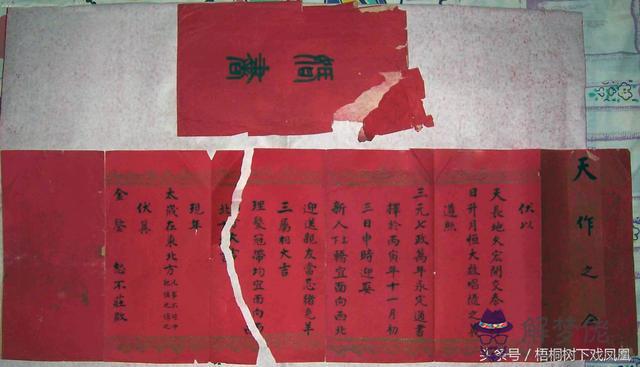 簡書
天作之合
伏以
天長地久宏開交泰
日升月恒大啟唱隨之
遵照
三元七政萬年永定通書
擇於丙寅年十一月初
三日申時迎娶
新人下轎宜面向西北
迎送親友當忌豬兔羊
三屬相大吉
理髮冠帶均宜面向西
北
現年
太歲在東北方
伏冀
金鑒 恕不莊啟
解梦佬
头条号 / 梧桐树下戏凤凰